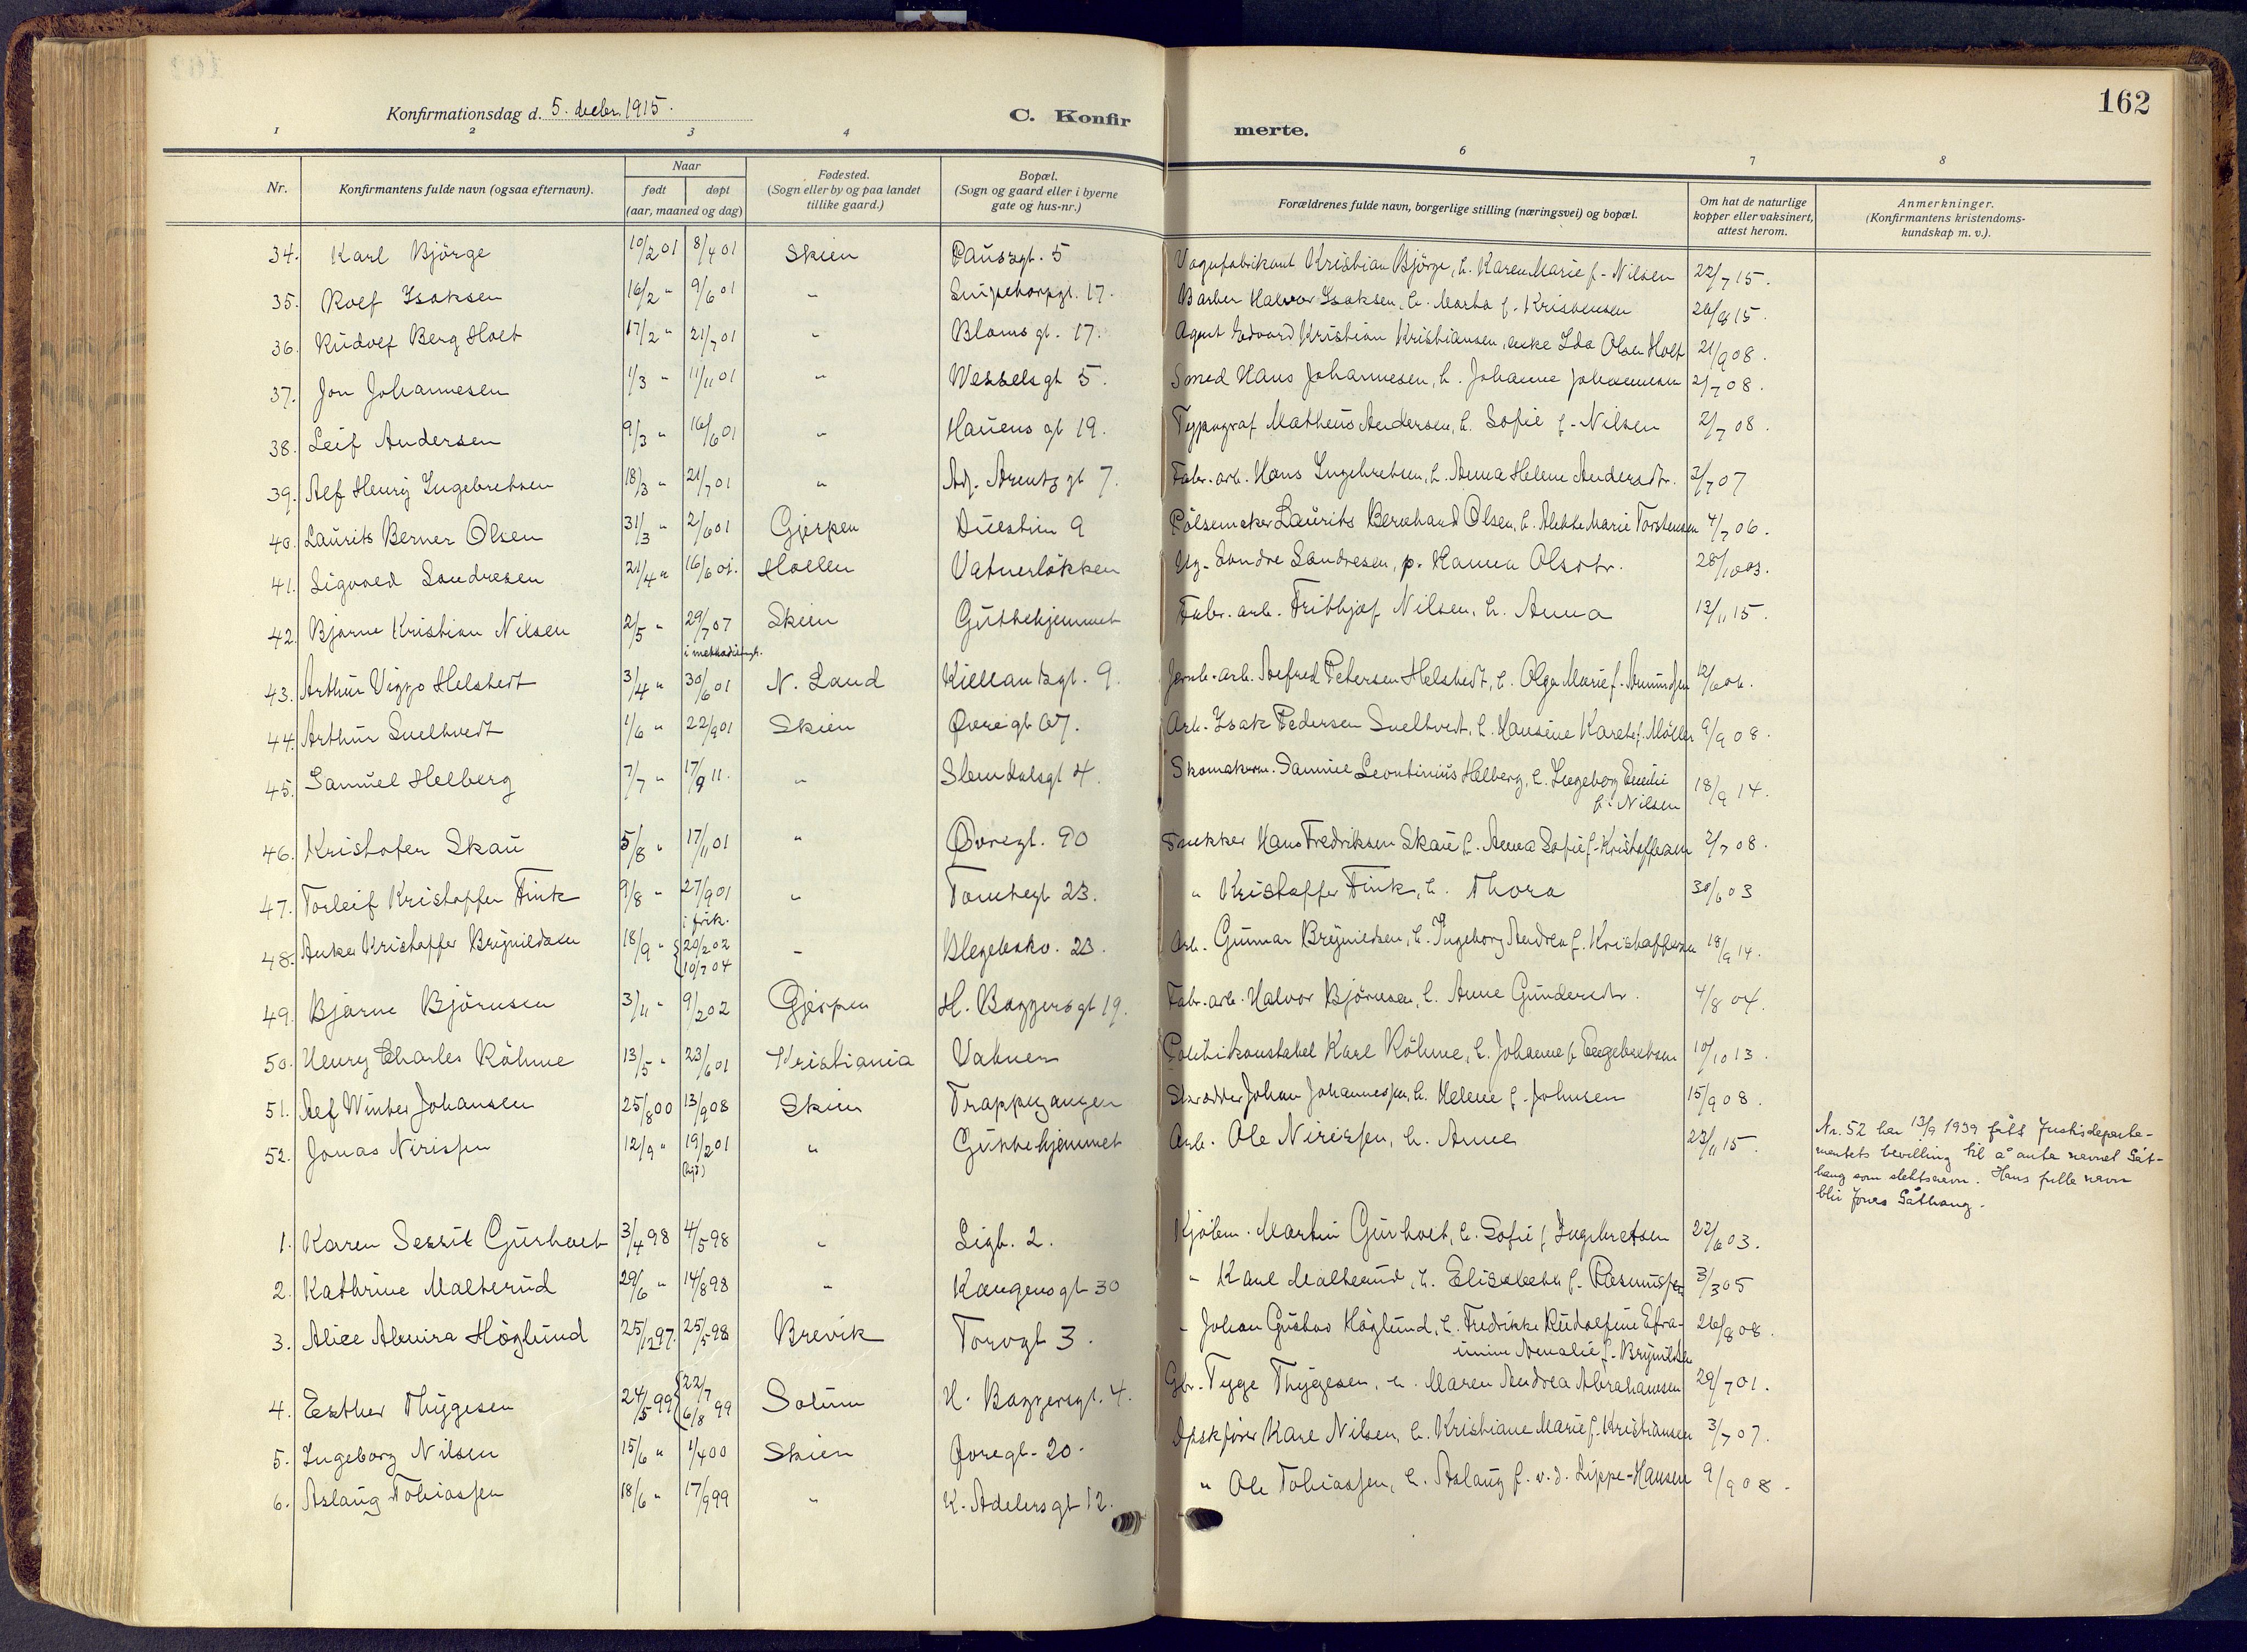 162
Konfirmationsdag d. 5. decbr. 1915.
C. Konfir
merte.
1 2 3 4 6 7 8
Nr. Konfirmantens fulde navn (ogsaa efternavn). Naar født døpt (aar, maaned og dag) Fødested. (Sogn eller by og paa landet tillike gaard.) Bopæl. (Sogn og gaard eller i byerne gate og hus-nr.) Forældrenes fulde navn, borgerlige stilling (næringsvei) og bopæl. Om hat de naturlige kopper eller vaksinert, attest herom. Anmerkninger. (Konfirmantens kristendoms-kundskap m. v.).
34. Karl Björge 10/2 01 8/4 01 Skien Pauszgt. 5 Vognfabrikant Kristian Björge, h. Karen Marie f. Nilsen 22/7 15.
35. Rolf Isaksen 16/2 " 9/6 01 " 17. Barber Halvor Isaksen, h. Marta f. Kristensen 26/8 15.
36. Rudolf Berg Holt 17/2 " 21/7 01 " Bloms gt. 17. Agent Edvard Kristian Kristiansen, enke Ida Olsen Holt 21/9 08.
37. Jon Johannesen 1/3 " 11/11 01 " Wessels gt 5. Smed Hans Johannesen, h. Johanne Johannesen 2/7 08.
38. Leif Andersen 9/3 " 16/6 01 " Hauens gt 19. Typograf Matheus Andersen, h. Sofie f. Nilsen 2/7 08.
39. Alf Henry Ingebretsen 18/3 " 21/7 01 " Adj. Arentz gt 7. Fabr. arb. Hans Ingebretsen, h. Anna Helene Andersdtr. 3/7 07
40. Laurits Berner Olsen 31/3 " 2/6 01 Gjerpen Duestien 9 Pölsemaker Laurits Bernhard Olsen, h. Alette Marie Torstensen 4/7 06.
41. Sigvald Sondresen 21/4 " 16/6 01. Hollen Vatnerlökken Ug. Sondre Sondresen, p. Hanna Olsdtr. 28/10 03.
42. Bjarne Kristian Nilsen 2/5 " 29/7 07 Skien Guttehjemmet Fabr. arb. Frithjof Nilsen, h. Anna 13/11 15.
i
43. Arthur Viggo Helstedt 3/4 " 30/6 01 N. Land Kiellandsgt. 9. Jernb. arb. Alfred Petersen Helstedt, h. Olga Marie f. Amundsen 12/6 06.
44. Arthur Snelltvedt 1/6 " 22/9 01 Skien Øvregt 67. Arb. Isak Pedersen Snelltvedt, h. Hansine Karete f. Möller 9/9 08.
45. Samuel Helberg 7/7 " 17/9 11. " Slemdalsgt 4. Skomakerm. Samuel Leontinius Helberg, h. Ingeborg Emilie
f. Nilsen 18/9 14.
46. Kristofer Skau 5/8 " 17/11 01 " Øvregt. 90 Snekker Hans Fredriksen Skau h. Anna Sofie f. Kristoffersen 2/7 08.
47. Torleif Kristoffer Fink 9/8 " 27/9 01 " Tomtegt 23. " Kristoffer Fink, h. Thora 30/6 03
i frik.
48. Anker Kristoffer Brynildsen 18/9 " 20/2 02 10/7 04 " Blegebakv. 23. Arb. Gunnar Brynildsen, h. Ingeborg Andrea f. Kristoffersen 18/9 14.
49. Bjarne Björnsen 3/11 " 9/2 02 Gjerpen H. Baggersgt 19. Fabr. arb. Halvor Björnsen, h. Anne Gundersdtr. 4/8 04.
50. Henry Charles Röhme 13/5 " 23/6 01 Kristiania Vatner Politikonstabel Karl Röhme, h. Johanne f. Engebretsen 10/10 13.
51. Alf Winter Johansen 25/8 00 13/9 08 Skien Trappegangen Skrædder Johan Johannessen, h. Helene f. Johnsen 15/9 08.
52. Jonas Nirisen 12/9 " 19/2 01 " Guttehjemmet Arb. Ole Nirisen, h. Anne 23/11 15.
Nr. 52 har 13/9 1939 fått Justisdeparte-
mentets bevilling til å anta navnet Såt-
haug som slektsnavn. Hans fulle navn
blir Jonas Såthaug.
1. Karen Sessil Gurholt 3/4 98 4/5 98 " Ligt. 2. Kjöbm. Martin Gurholt, h. Sofie f. Ingebretsen 22/6 03.
2. Kathrine Malterud 29/6 " 14/8 98 " Kongens gt 30 " Karl Malterud, h. Elisabeth f. Rasmussen 3/3 05
3. Alice Elmira Höglund 25/12 97. 25/5 98 Brevik Torvgt 3. " Johan Gustav Höglund, h. Fredrikke Rudolfine Efra-
Amalie f. Brynildsen 26/8 08.
4. Esther Thygesen 24/5 99 22/7 6/8 99 Solum H. Baggersgt. 4. Gbr. Tygge Thygesen, h. Maren Andrea Abrahamsen 29/7 01.
5. Ingeborg Nilsen 15/6 " 1/4 00 Skien Øvregt. 20. Karl Nilsen, h. Kristiane Marie f. Kristiansen 3/7 07.
6. Aslaug Tobiassen 18/6 " 17/9 99 " K. Adelersgt 12. " Ole Tobiassen, h. Aslaug f. v. d. Lippe-Hansen 9/9 08.